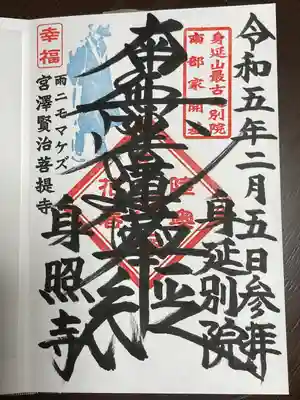 令和五年二月五日参拝
身延山最古別院
南部家開基
身延別院
南無妙法蓮華経
陸奥
花巻
幸福
雨ニモマケズ
宮澤賢治菩提寺
身照寺